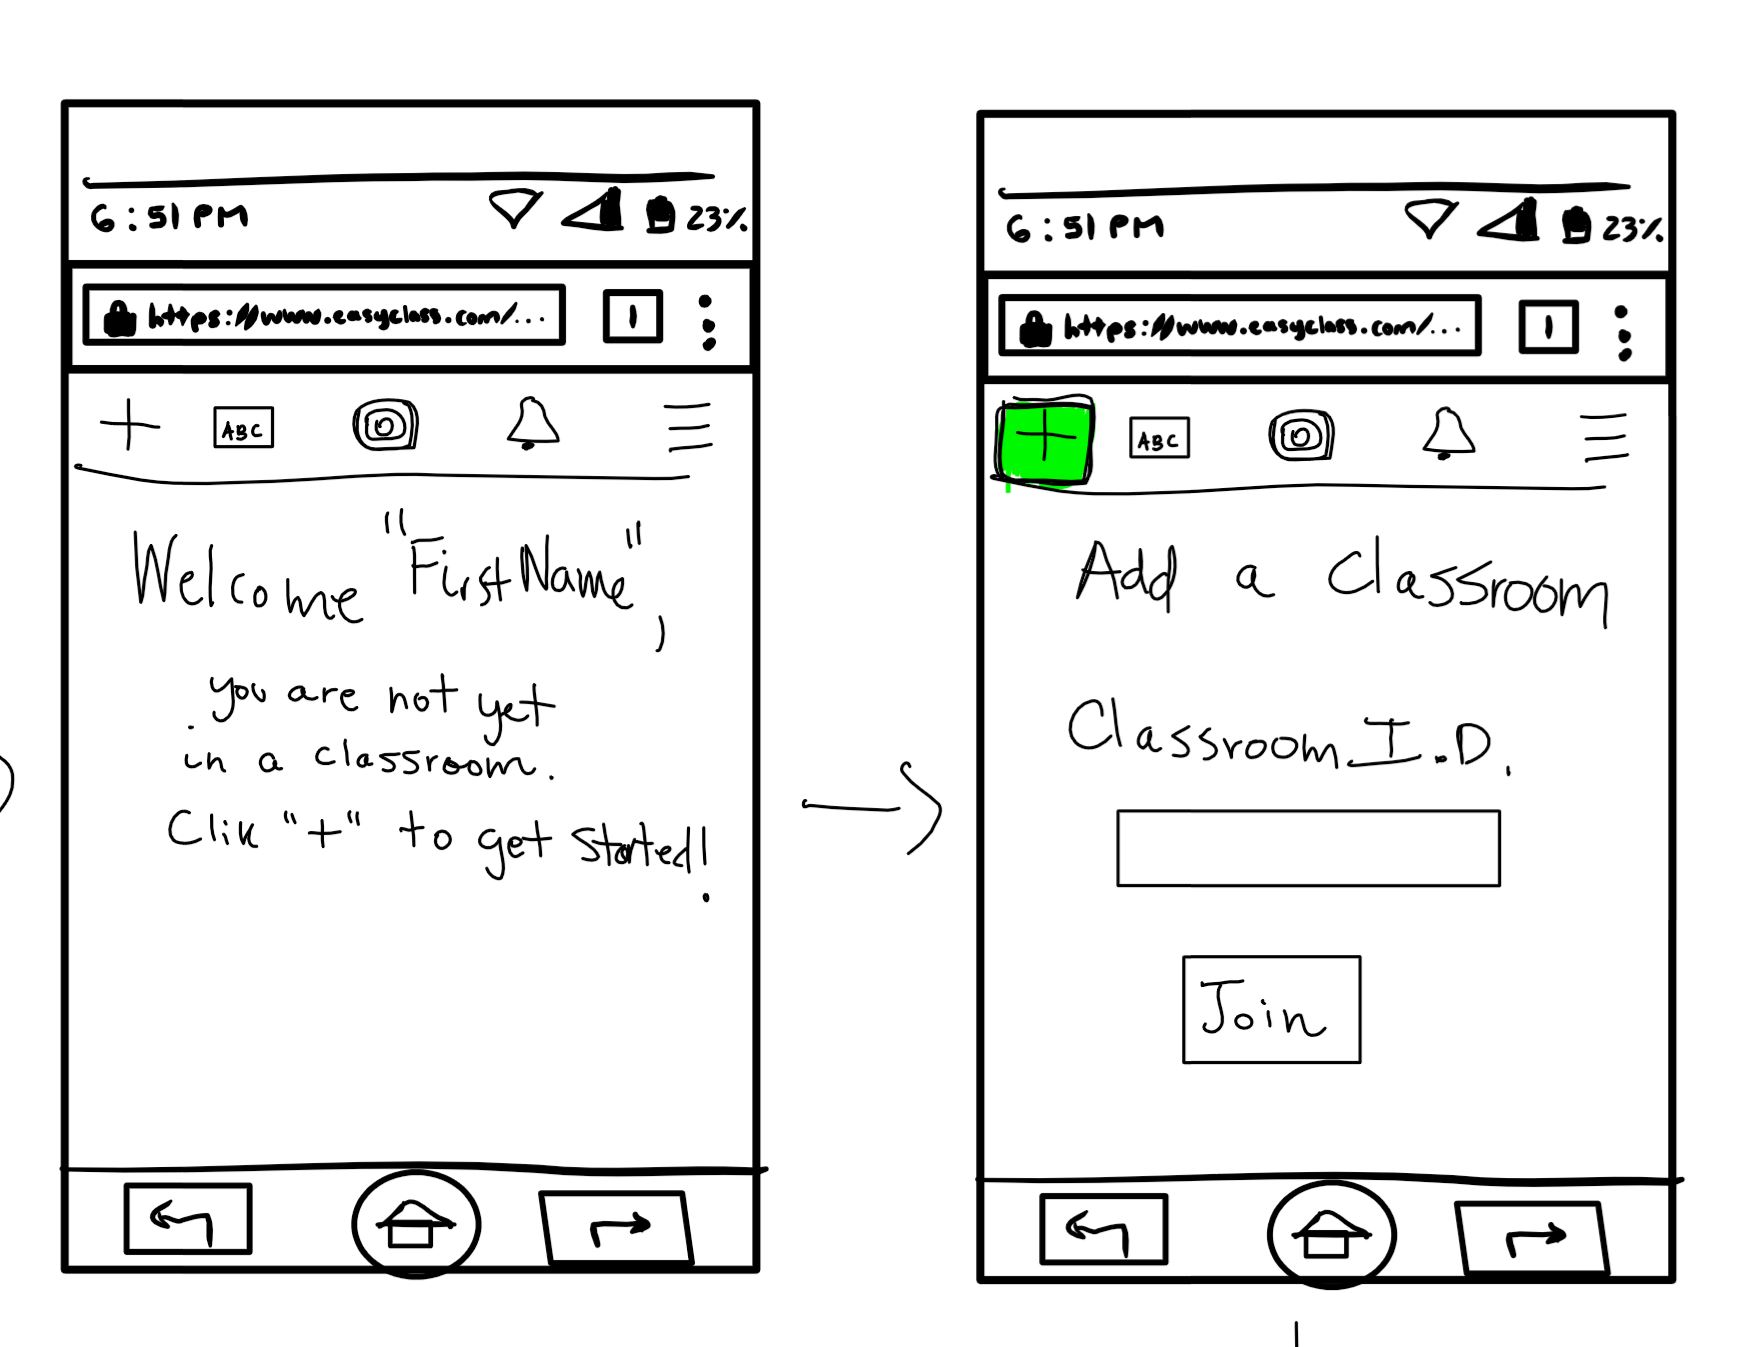 6:51 PM 23%
https://www.easyclass.com/... 1
ABC
Welcome "FirstName",
you are not yet
in a classroom.
Clik "+" to get started!
6:51 PM 23%
https://www.easyclass.com/... 1
+ ABC
Add a Classroom
Classroom I.D.
Join